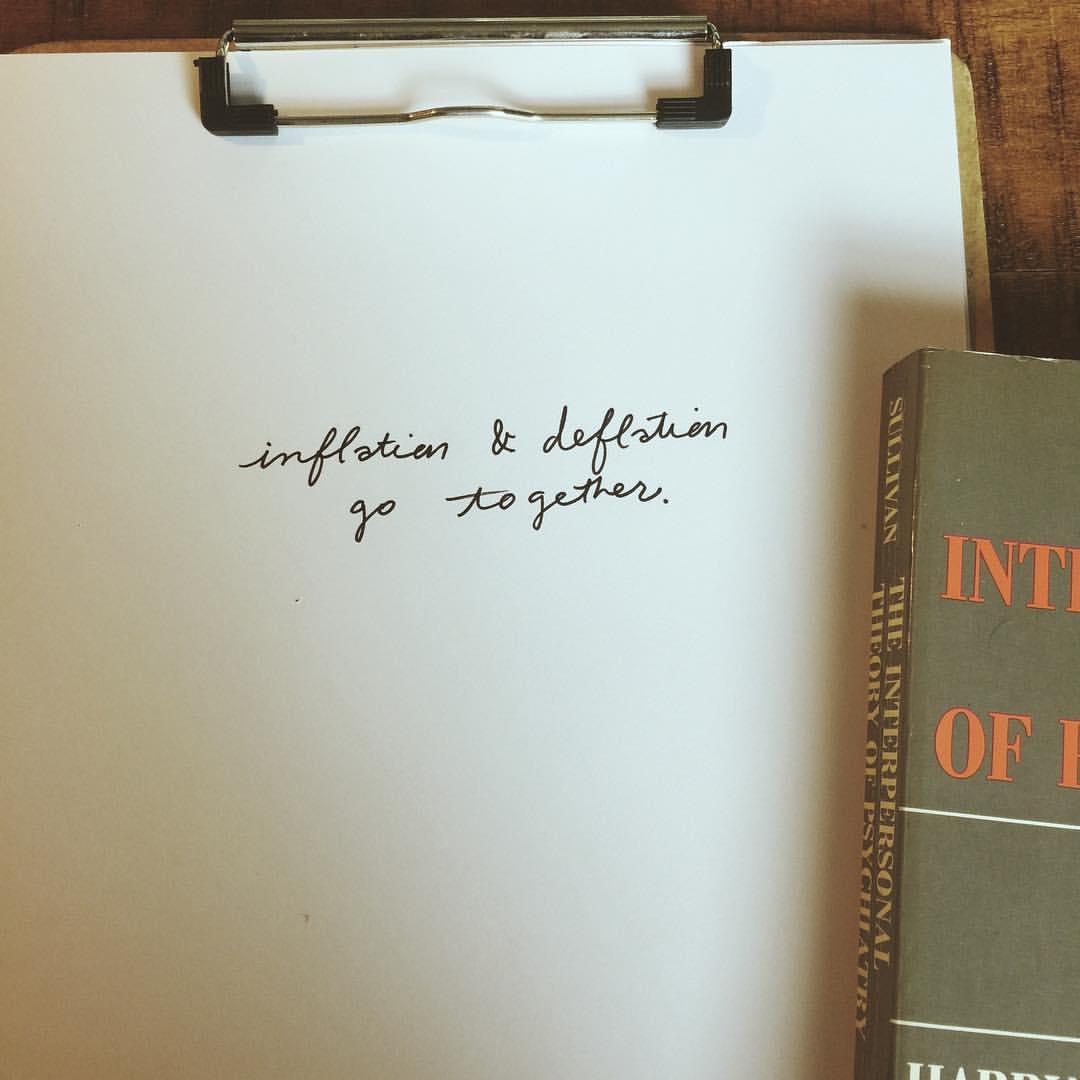 inflation & deflation
go together.
SULLIVAN THE INTERPERSONAL
THEORY OF PSYCHIATRY
OF